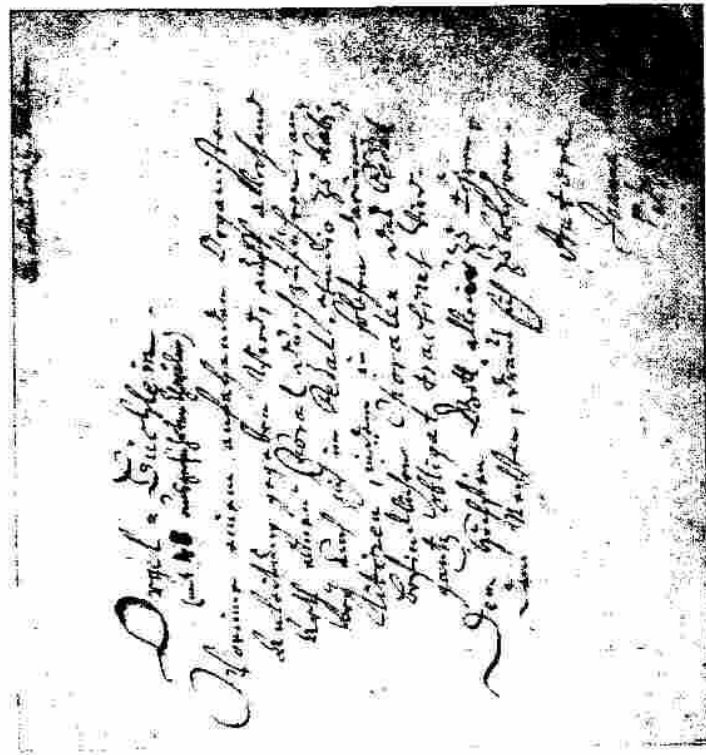 Orgel-Büchlein
(mit 48 ausgeführten Chorälen)
Worinne einem anfahenden Organisten
Anleitung gegeben wird, auff allerhand
Arth einen Choral durchzuführen, an-
bey auch sich im Pedal studio zu habi-
litiren, indem in solchen darinne
befindlichen Choralen das Pedal
gantz obligat tractiret wird.
Dem Höchsten Gott allein zu Ehren,
Dem Nechsten, draus sich zu belehren.
Autore
Joanne